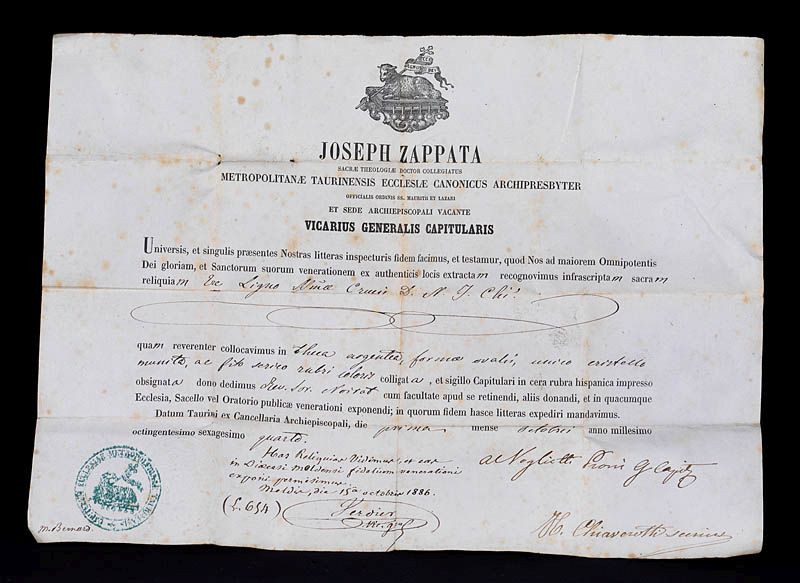 JOSEPH ZAPPATA
SACRÆ THEOLOGIÆ DOCTOR COLLEGIATUS
METROPOLITANÆ TAURINENSIS ECCLESIÆ CANONICUS ARCHIPRESBYTER
OFFICIALIS ORDINIS SS. MAURITII ET LAZARI
ET SEDE ARCHIEPISCOPALI VACANTE
VICARIUS GENERALIS CAPITULARIS
Universis, et singulis præsentes Nostras litteras inspecturis fidem facimus, et testamur, quod Nos ad maiorem Omnipotentis
Dei gloriam, et Sanctorum suorum venerationem ex authenticis locis extractam recognovimus infrascriptam sacram
reliquiam Ex Ligno Crucis D. N. J. Chi.
quam reverenter collocavimus in theca argentea, formæ ovalis, unico cristallo
munita, ac filo serico rubri coloris colligata, et sigillo Capitulari in cera rubra hispanica impresso
obsignata dono dedimus Rev. cum facultate apud se retinendi, aliis donandi, et in quacumque
Ecclesia, Sacello vel Oratorio publicæ venerationi exponendi; in quorum fidem hasce litteras expediri mandavimus.
Datum Taurini ex Cancellaria Archiepiscopali, die prima mense octobris anno millesimo
octingentesimo sexagesimo quarto.
Has Reliquias Vidimus, et eas
in Diœcesi Meldensi fidelium venerationi
exponi permisimus.
Meldis, die 15a octobris 1886.
(f. 654)
Vic. gal
M. Bernard.